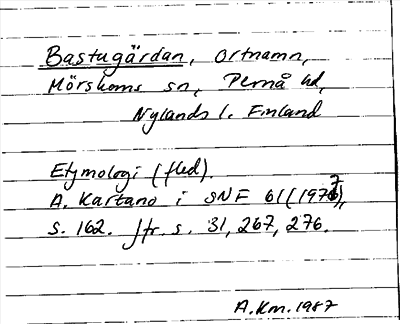 Bastugärdan, Ortnamn,
Mörskoms sn, Pernå hd,
Nylands l. Finland
Etymologi (fled).
A. Kartano i SNF 61 (1977),
s. 162. Jfr. s. 31, 267, 276.
A.Km. 1987